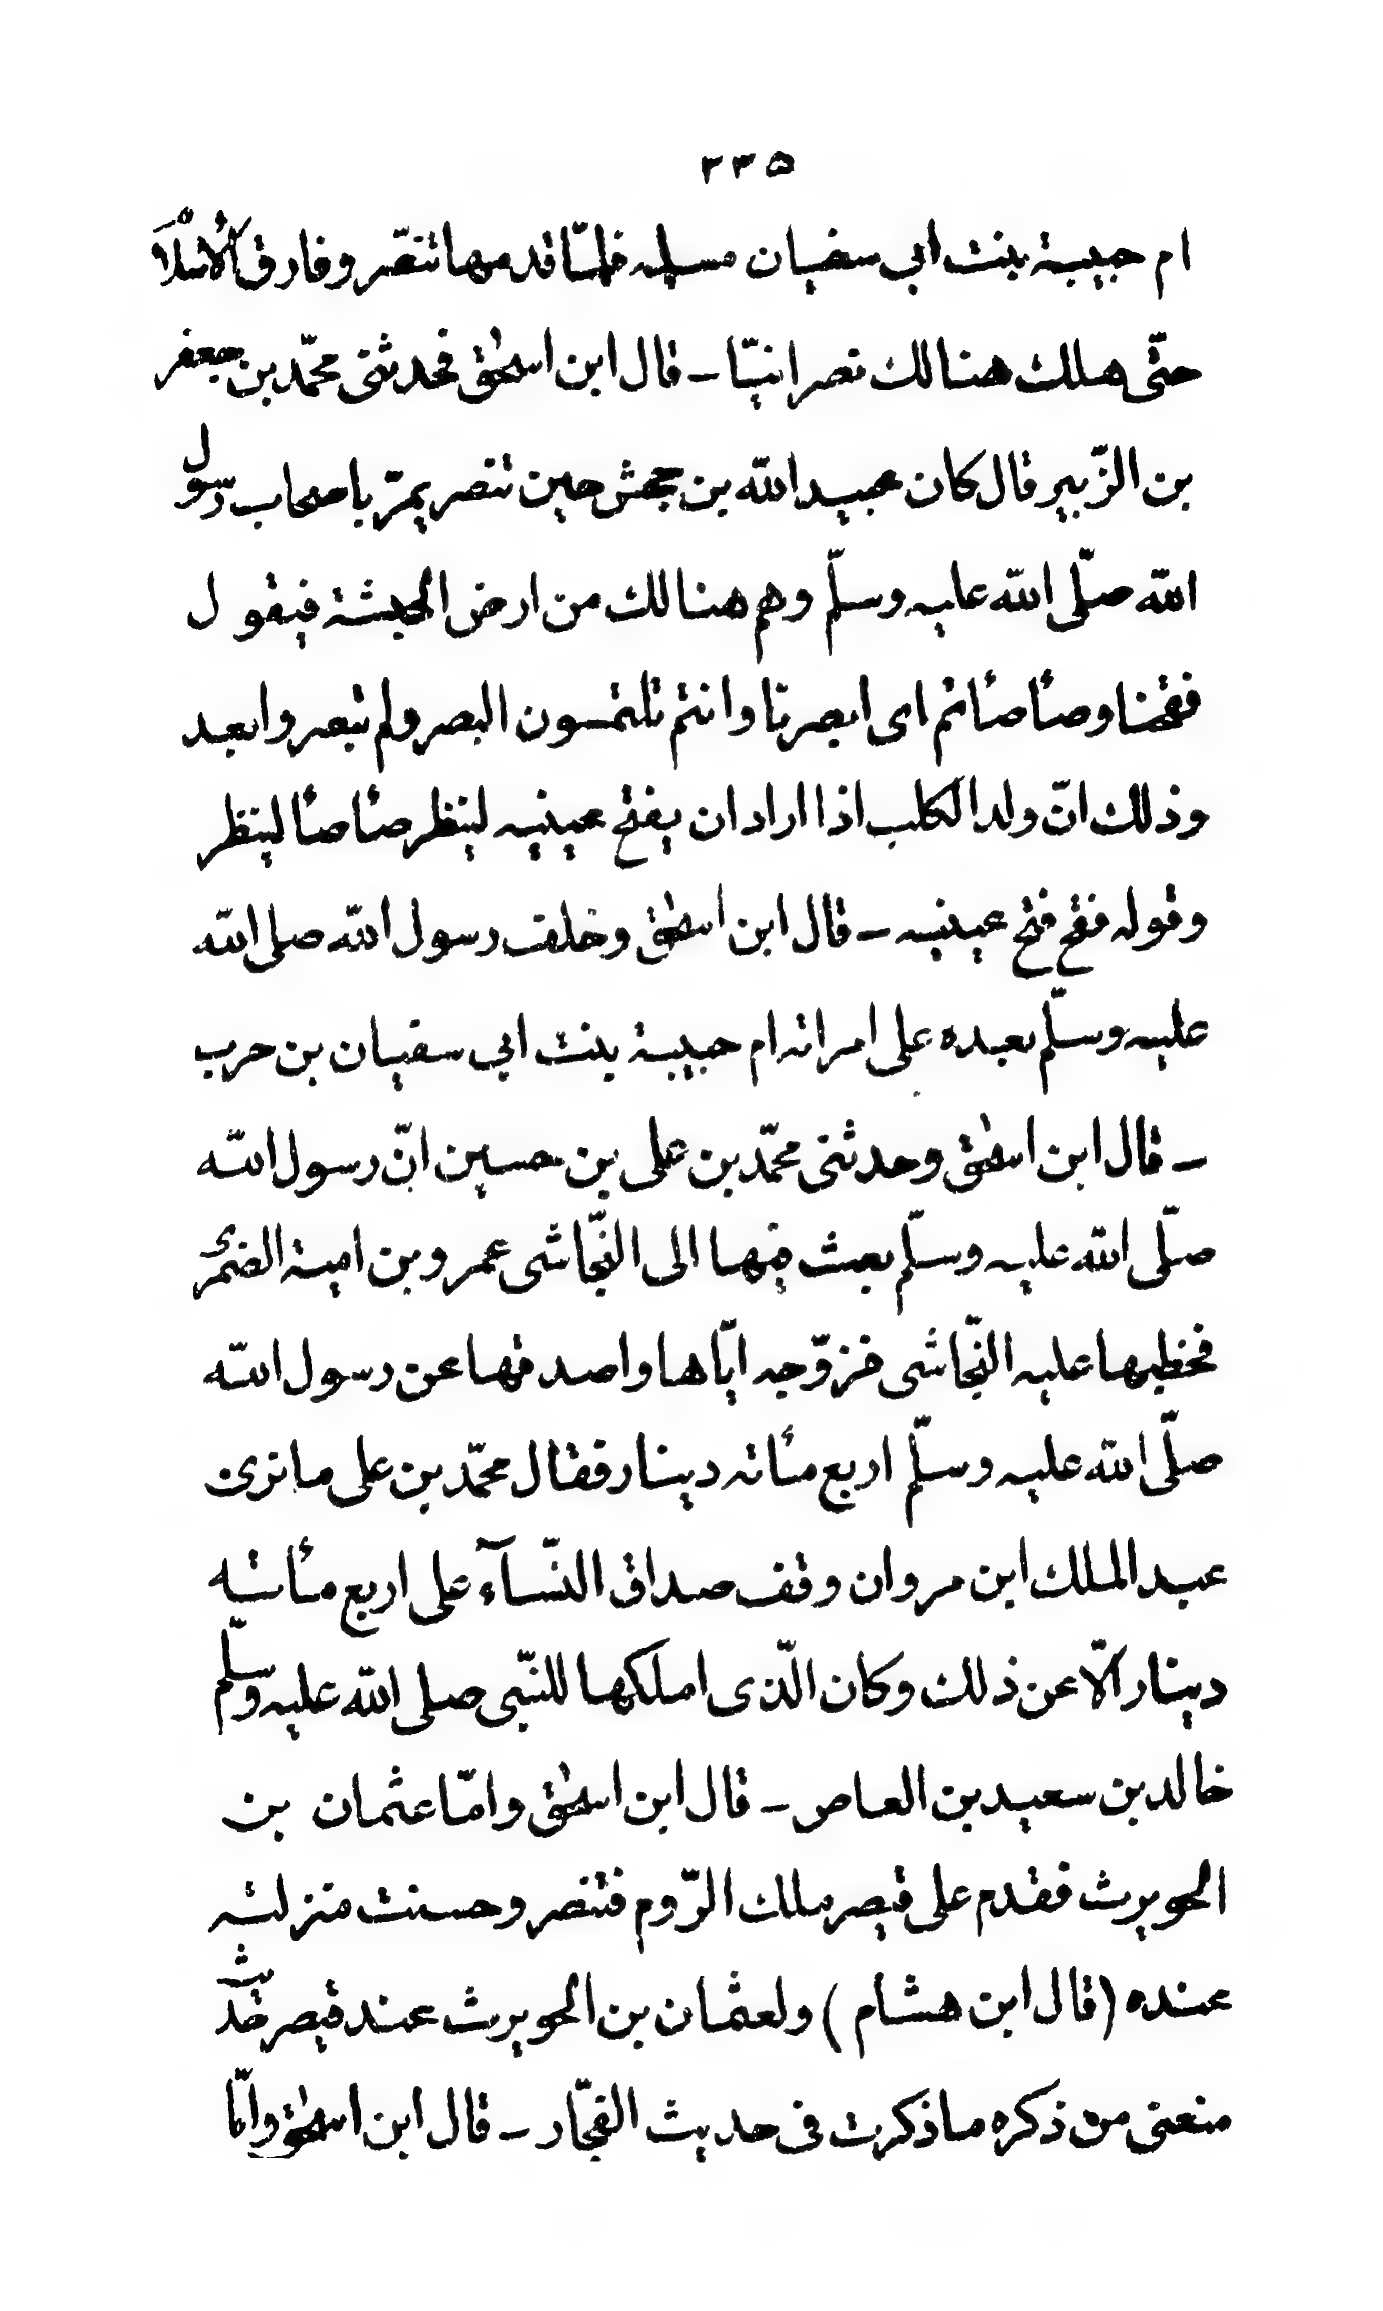 ٢٣٥
ام حبيبة بنت ابي سفيان مسلمه فلمّا قدمها تنصّر وفارق الاسْلَام
حتّى هلك هنالك نصرانيّا ــ قال ابن اسحٰق فحدثنى محمّد بن جعفر
بن الزّبير قال كان عبيد الله بن جحش حين تنصر يمرّ باصحاب رسول
الله صلّى الله عليه وسلّم وهم هنالك من ارض الحبشة فيقول
فقحنا وصأصأتم اى ابصرنا وانتم تلتمسون البصر ولم تبصروا بعد
وذلك انّ ولد الكلب اذا اراد ان يفتح عينيه لينظر صأصأ لينظر
وقوله فقح فتح عينيه ــ قال ابن اسحٰق وخلف رسول الله صلى الله
عليه وسلّم بعده على امراته ام حبيبة بنت ابي سفيان بن حرب
ــ قال ابن اسحٰق وحدثنى محمّد بن على بن حسين انّ رسول الله
صلّى الله عليه وسلّم بعث فيها الى النّجاشى عمرو بن امية الضمرى
فخطبها عليه النّجاشى فزوّجه ايّاها واصدقها عن رسول الله
صلّى الله عليه وسلّم اربع مأته دينار فقال محمّد بن على ما نرى
عبد الملك ابن مروان وقف صداق النّسآء على اربع مأته
دينار الّا عن ذلك وكان الّذى املكها للنّبى صلى الله عليه وسلّم
خالد بن سعيد بن العاص ــ قال ابن اسحٰق وامّا عثمان بن
الحويرث فقدم على قيصر ملك الرّوم فتنصر وحسنت منزلته
عنده (قال ابن هشام) ولعثمان بن الحويرث عند قيصر حديث
منعنى من ذكره ما ذكرت فى حديث الفجّار ــ قال ابن اسحٰق وامّا